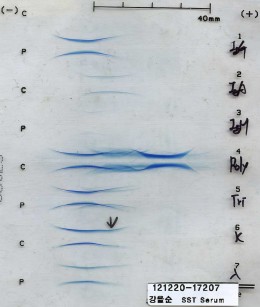 (-) C 40mm (+)
P 1 IgG
C 2 IgA
P 3 IgM
C 4 Poly
P 5 Tri
C 6 K
P 7 λ
121220-17207
SST Serum